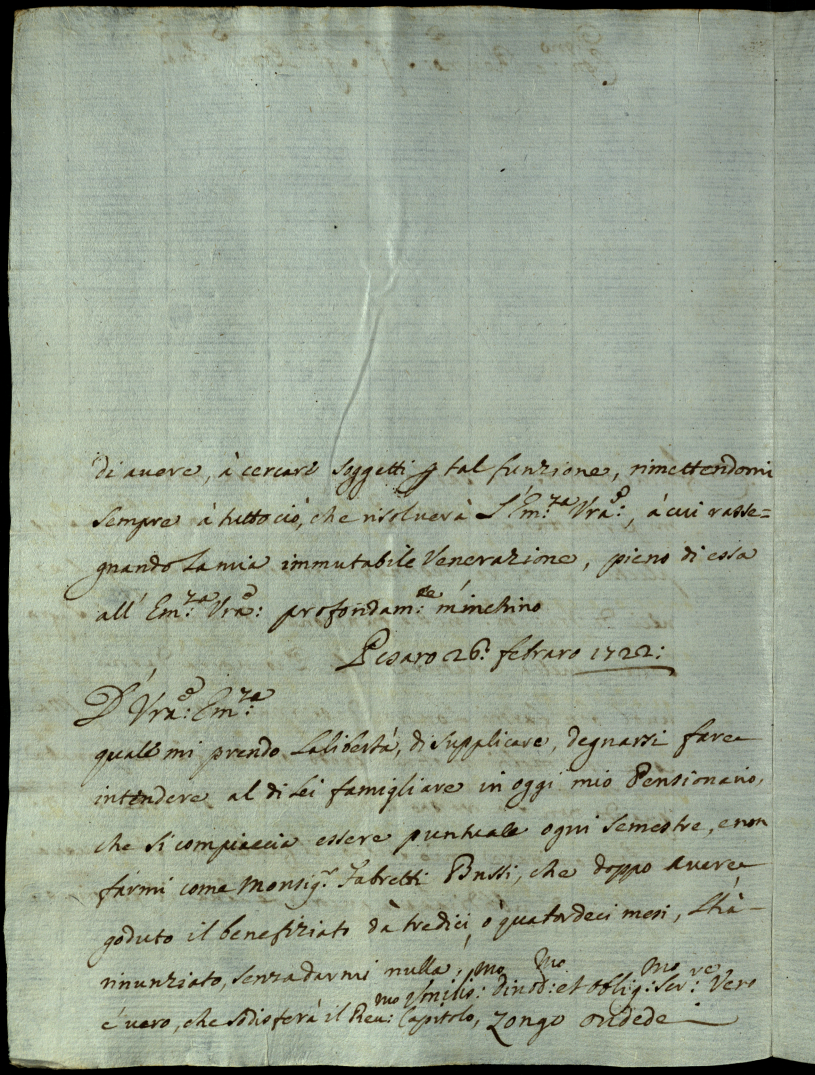 di auere, à cercare soggetti p tal funzione, rimettendomi
sempre à tutto ciò, che risoluerà L'Em:za Vra:, à cui rasse=
gnando La mia immutabile Venerazione, pieno di essa
all' Em:za Vra: profondam:te m'inchino
Pesaro 26: febraro 1722:
D' Vra: Em:za
quale mi prendo La libertà, di supplicare, degnarsi fare
intendere al di Lei famigliare in oggi mio Pensionario,
che si compiaccia essere puntuale ogni semestre, e non
farmi come Monsig:r Fabretti Bussi, che doppo avere
goduto il benefiziato da tredici, ò quatordeci mesi, L'hà
rinunziato, senza darmi nulla,
è uero, che sodisferà il Reu:mo Capitolo,
Vmilis:mo Diuot:mo et Oblig:mo Ser:re Vero
Zongo Ondedei